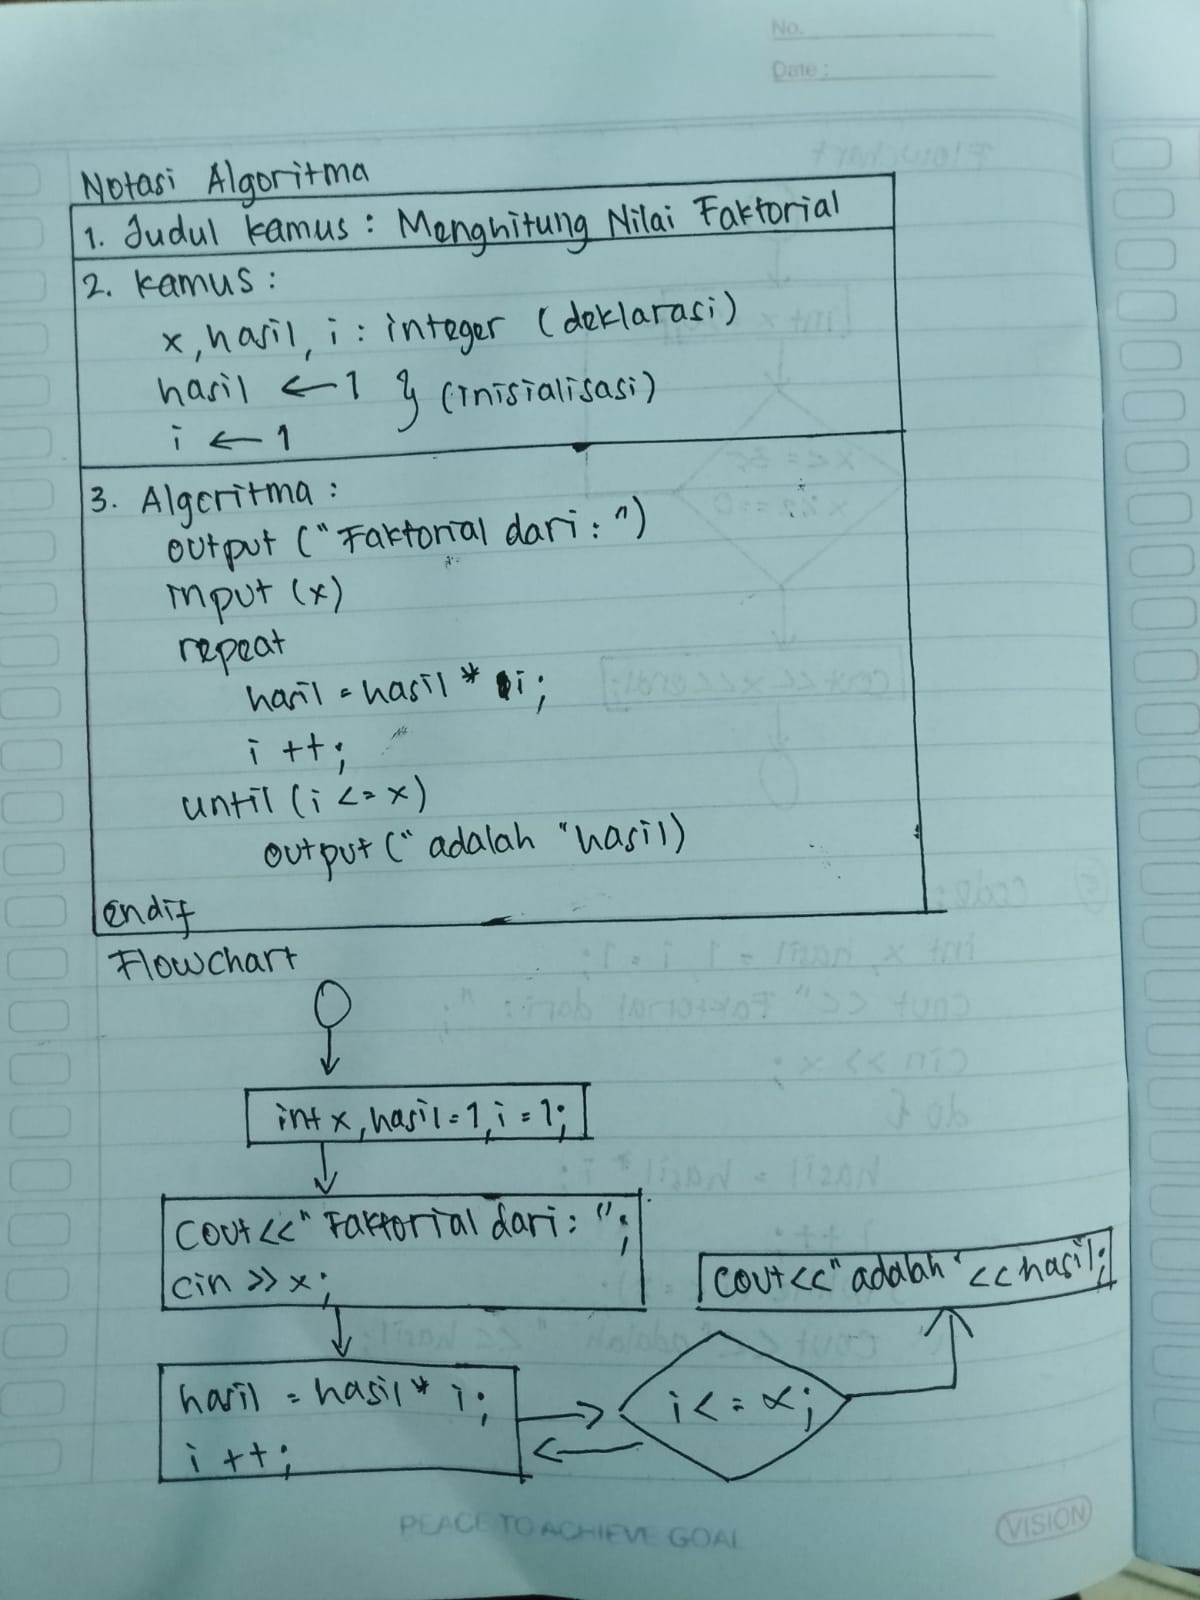 No.
Date :
Notasi Algoritma
1. Judul kamus : Menghitung Nilai Faktorial
2. kamus :
x, hasil, i : integer (deklarasi)
hasil ← 1 } (inisialisasi)
i ← 1
3. Algoritma :
output (" Faktorial dari : ")
input (x)
repeat
hasil = hasil * i ;
i ++ ;
until (i <= x)
output (" adalah " hasil)
endif
Flowchart
int x, hasil = 1, i = 1;
cout << " Faktorial dari : ";
cin >> x ;
cout << " adalah " << hasil;
hasil = hasil * i ;
i ++ ;
i <= x ;
PEACE TO ACHIEVE GOAL
VISION